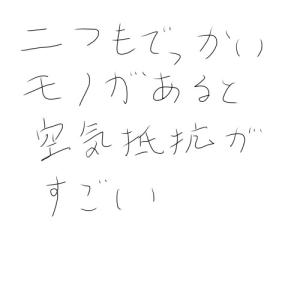 二つもでっかい
モノがあると
空気抵抗が
すごい